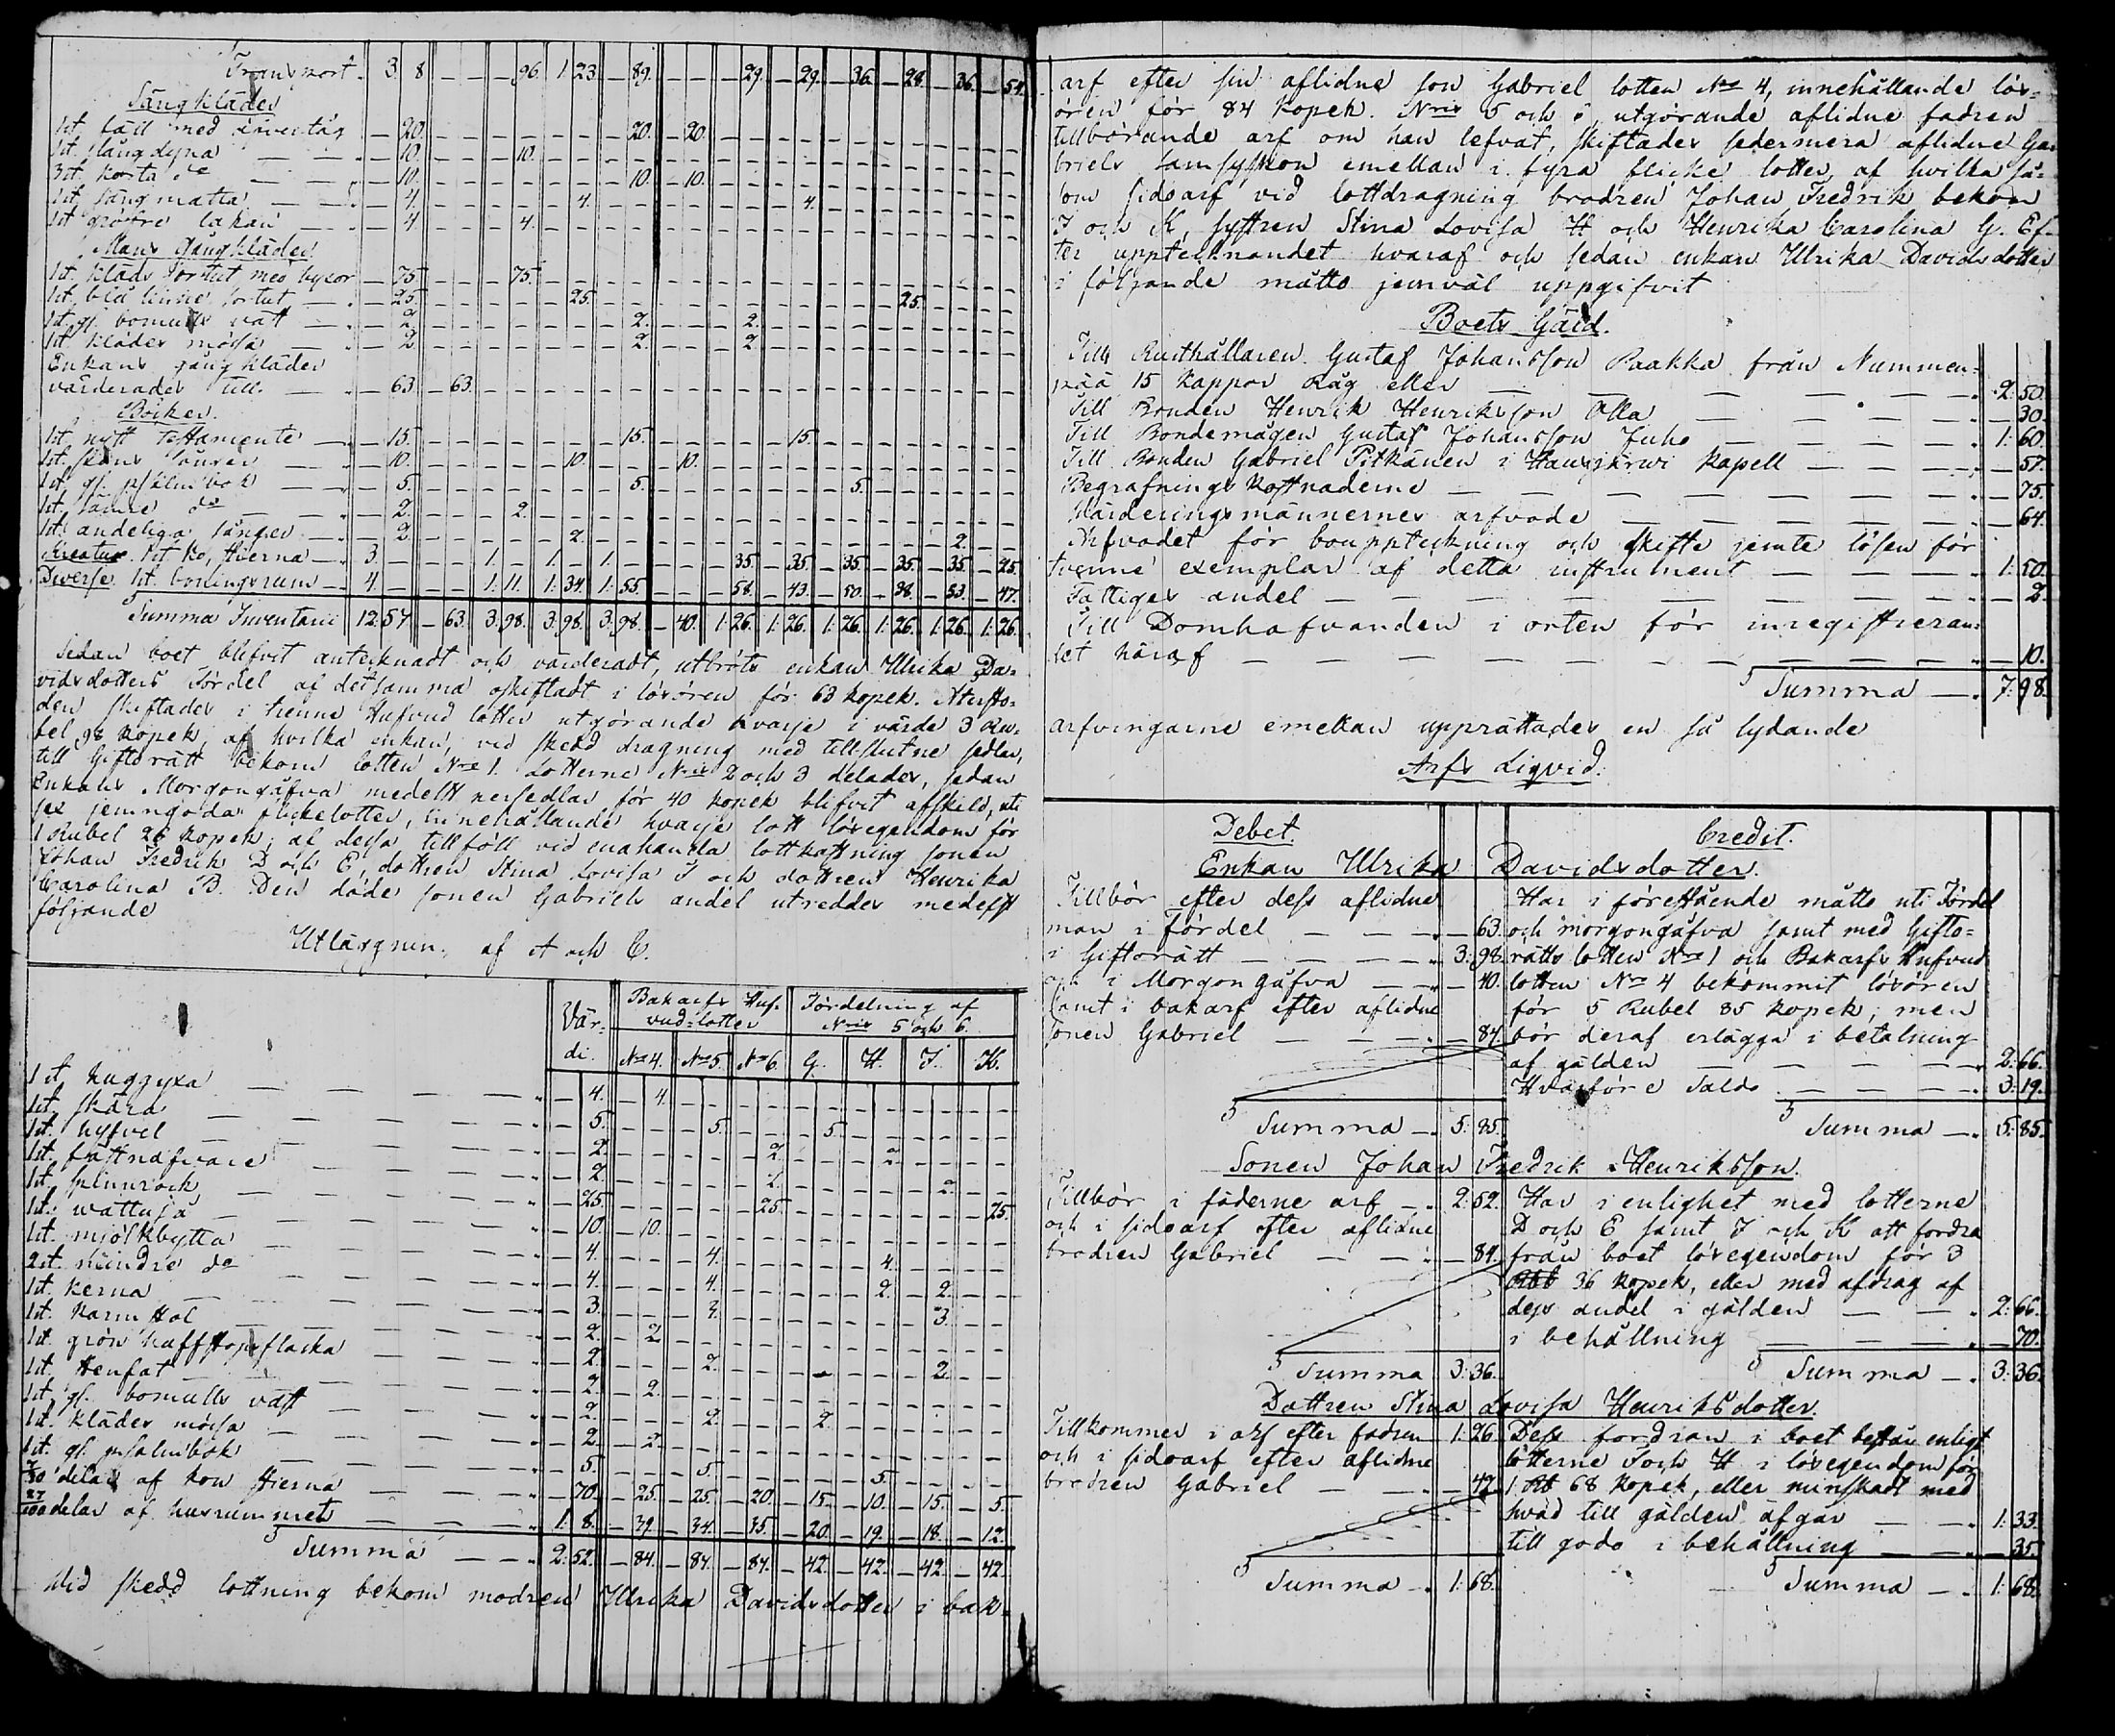 Transport 3 8 — — — 96. 1 23 — 89. — — — 29. — 29. — 36. — 28. — 36. — 54.
Sängkläder
1st. fäll med öfvertåg — 20. — 20. — 20.
1st. långdyna — 10. — 10.
3st. korta do — 10. — 10. — 10.
1st. sängmatta — 4. — 4. — 4.
1st. gröfre lakan — 4. — 4.
Mans Gångkläder
1st. kläds sortut med byxor — 75. — 75.
1st. blå linne sortut — 25. — 25. — 25.
1st. gl. bomulls väst — 2. — 2. — 2.
1st. klädes mössa — 2. — 2. — 2.
Enkans gångkläder
värderades till — 63. — 63.
Böcker.
1st. nytt Testamente — 15. — 15. — 15.
1st. — 10. — 10. — 10.
1st. gl. psalmbok — 5. — 5. — 5.
1st. sämre do — 2. — 2.
1st. andeliga sånger — 2. — 2. — 2.
Kreatur. 1st. ko, Stierna — 3. — 1. — 1. — 1. — 35. — 35. — 35. — 35. — 35. — 25.
Diverse 1st. boningsrum — 4. — 1: 11. 1: 34. 1: 55. — 58. — 43. — 50. — 38. — 53. — 47.
Summa Inventarii 12: 57. — 63. 3: 98. 3: 98. 3: 98. — 40. 1: 26. 1: 26. 1: 26. 1: 26. 1: 26. 1: 26.
Sedan boet blifvit antecknadt och värderadt, utbröts enkan Ulrika Da-
vidsdotters Fördel af det samma oskiftadt i lösören för 63 kopek. Återsto-
den skiftades i trenne Hufvud lotter utgörande hvarje i värde 3 Ru-
bel 98 kopek, af hvilka enkan, vid skedd dragning med tillslutne sedlar,
till Giftorätt bekom lotten No 1. Lotterne Nris 2 och 3 delades, sedan
Enkans Morgongåfva medelst sedlar för 40 kopek blifvit afskild, uti
sex jemngoda flickelotter, innehållande hvarje lott lösegendom för
1 Rubel 26 kopek; af dessa tillföll vid enahanda lottkastning sonen
Johan Fredrik D och E, dottren Stina Lovisa F och dottren Henrika
Carolina B. Den döde sonen Gabriels andel utreddes medelst
följande
Utlägning af A och C.
Vär- di. Bakarfs Huf- vud-lotter Fördelning af Nris 5 och 6.
No 4. No 5. No 6. G. H. I. K.
1st. huggyxa — 4. — 4.
1st. skära — 5. — 5. — 5.
1st. hyfvel — 2. — 2. — 2.
1st. fattnafvare — 2. — 2. — 2.
1st. spinnrock — 25. — 25. — 25.
1st. wattuså — 10. — 10.
1st. mjölkbytta — 4. — 4. — 4.
2st. mindre do — 4. — 4. — 2. — 2.
1st. kerna — 3. — 3. — 3.
1st. karm stol — 2. — 2.
1st. grön flaska — 2. — 2. — 2.
1st. stenfat — 2. — 2.
1st. gl. bomulls väst — 2. — 2. — 2.
1st. klädes mössa — 2. — 2.
1st. gl. psalmbok — 5. — 5. — 5.
delar af kon Stierna — 70. — 25. — 25. — 20. — 15. — 10. — 15. — 5.
27/100 delar af husrummet 1: 8. — 39. — 34. — 35. — 20. — 19. — 18. — 12.
Summa — 2: 52. — 84. — 84. — 84. — 42. — 42. — 42. — 42.
Vid skedd lottning bekom modren Ulrika Davidsdotter i bak-
arf efter sin aflidne son Gabriel lotten No 4, innehållande lös-
ören för 84 kopek. Nris 5 och 6, utgörande aflidne fadren
tillhörande arf om han lefvat, skiftades sedermera aflidne Ga-
briels samsyskon emellan i fyra flicke lotter, af hvilka så-
som sidoarf vid lottdragning brodren Johan Fredrik bekom
I och K, systren Stina Lovisa H och Henrika Carolina G. Ef-
ter upptecknandet hvaraf och sedan enkan Ulrika Davidsdotter
i följande måtto jemväl uppgifvit
Boets Gäld.
Till Rusthållaren Gustaf Johansson Paakka från Nummen-
pää 15 kappor Råg eller — 2: 50.
Till Bonden Henrik Henriksson Olla — 30.
Till Bondemågen Gustaf Johansson Juho — 1: 60.
Till Bonden Gabriel Pitkänen i Hausjärwi kapell — 57.
Begrafnings kostnaderne — 75.
Värderingsmännernes arfvode — 64.
Arfvodet för bouppteckning och skifte jemte lösen för
tvenne exemplar af detta instrument — 1: 50.
Fattiges andel — 2.
Till Domhafvanden i orten för inregistreran-
det häraf — 10.
Summa — 7: 98.
arfvingarne emellan upprättades en så lydande
Arfs Liqvid.
Debet. Credit.
Enkan Ulrika Davidsdotter.
Tillbör efter dess aflidne
man i Fördel — 63.
i Giftorätt — 3: 98.
och i Morgongåfva — 40.
samt i bakarf efter aflidne
sonen Gabriel — 84.
Summa — 5: 85.
Har i föreslående måtto uti Fördel
och morgongåfva samt med Gifto-
rätts lotten No 1 och Bakarfs Hufvud
lotten No 4 bekommit lösören
för 5 Rubel 85 kopek; men
bör deraf erlägga i betalning
af gälden — 2: 66.
Hvarföre Saldo — 3: 19.
Summa — 5: 85.
Sonen Johan Fredrik Henriksson.
Tillbör i fäderne arf — 2: 52.
och i sidoarf efter aflidne
brodren Gabriel — 84.
Summa 3: 36.
Har i enlighet med lotterne
D och E samt I och K att fordra
från boet lösegendom för 3
Rbl 36 kopek, eller med afdrag af
dess andel i gälden — 2: 66.
i behållning — 70.
Summa — 3: 36.
Dottren Stina Lovisa Henriksdotter.
Tillkommer i arf efter fadren 1: 26.
och i sidoarf efter aflidne
brodren Gabriel — 42.
Summa — 1: 68.
Dess fordran i boet består enligt
lotterne F och H i lösegendom för
1 Rbl 68 kopek, eller minskadt med
hvad till gälden afgår — 1: 33.
till godo i behållning — 35.
Summa — 1: 68.